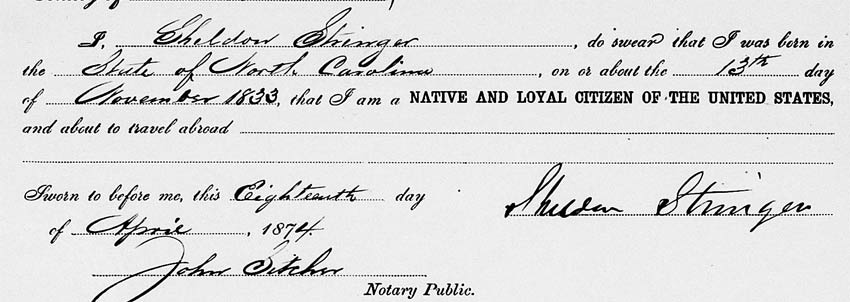 I, Sheldon Stringer, do swear that I was born in
the State of North Carolina, on or about the 13th day
of November 1833, that I am a NATIVE AND LOYAL CITIZEN OF THE UNITED STATES,
and about to travel abroad
Sworn to before me, this Eighteenth day
Sheldon Stringer
of April, 1874.
John
Notary Public.